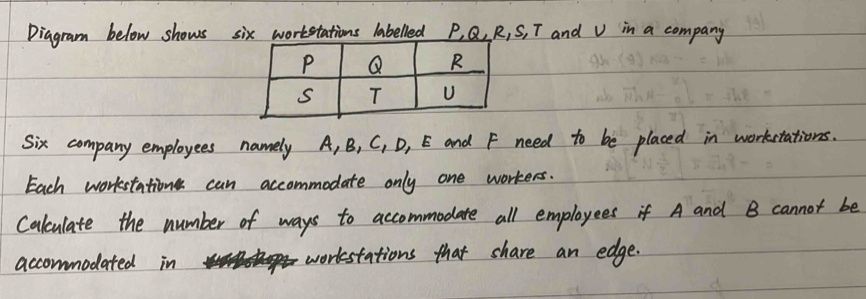 Diagram below shows six workstations labelled P, Q, R, S, T and U in a company
P Q R
S T U
Six company employees namely A, B, C, D, E and F need to be placed in workstations.
Each workstation can accommodate only one workers.
Calculate the number of ways to accommodate all employees if A and B cannot be
accommodated in workstations that share an edge.